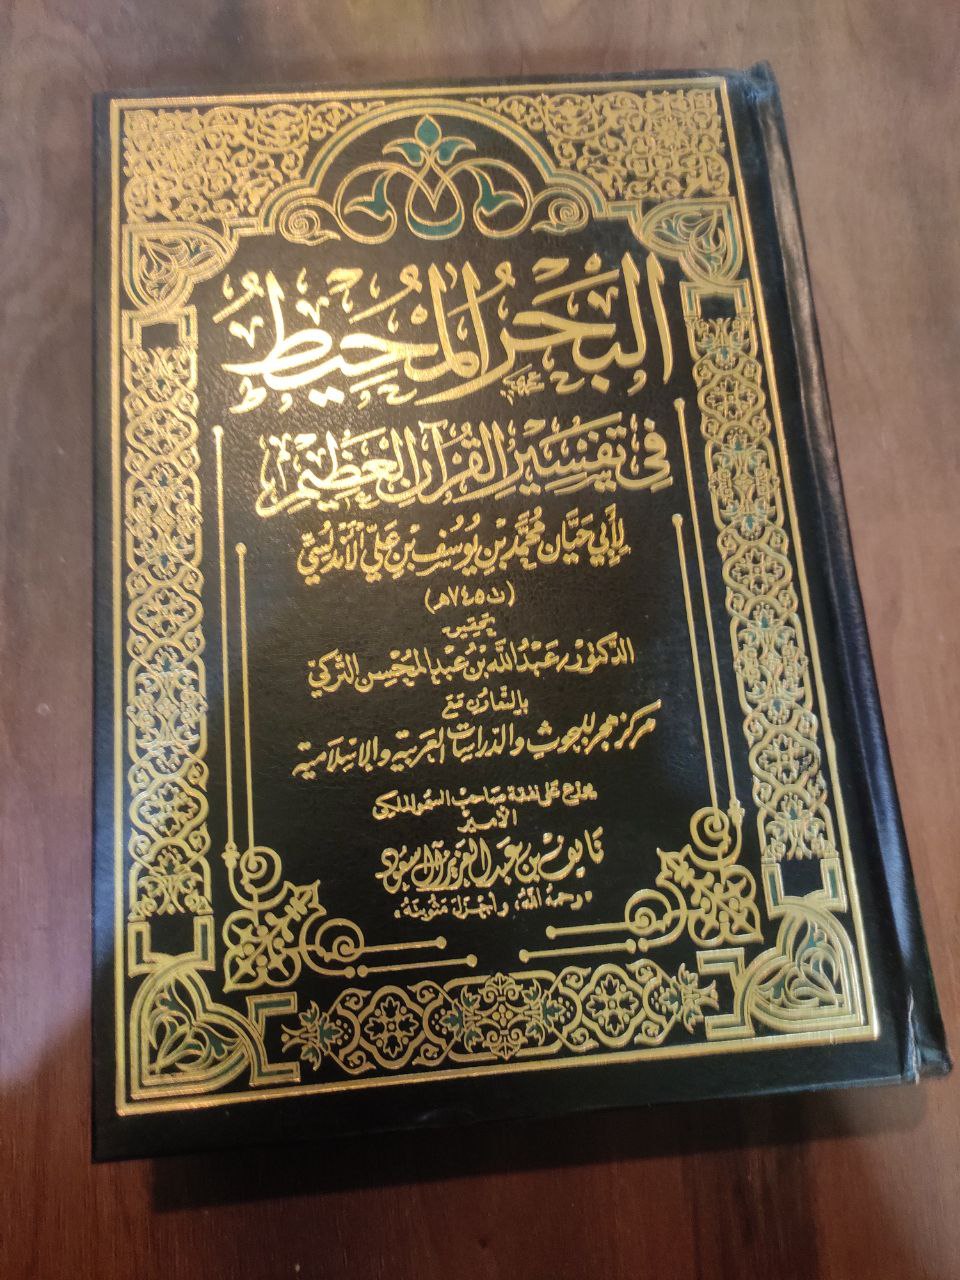 البَحْرُ المُحِيطُ
فِي تَفْسِيرِ القُرْآنِ العَظِيمِ
لِأَبِي حَيَّان مُحَمَّد بْنِ يُوسُف بْنِ عَلِيّ الأَنْدَلُسِيّ
(ت ٧٤٥هـ)
تحقيق
الدكتور/ عَبْدُ اللَّه بْنُ عَبْدِ المُحْسِنِ التُّرْكِيّ
بالتَّعَاوُن مَعَ
مركز هجر للبحوث والدراسات العربية والإسلامية
يوزع على نفقة صاحب السمو الملكي
الأمير
نايف بن عبد العزيز آل سعود
"رحمهُ اللَّهُ، وأجزلَ مثوبتهُ"